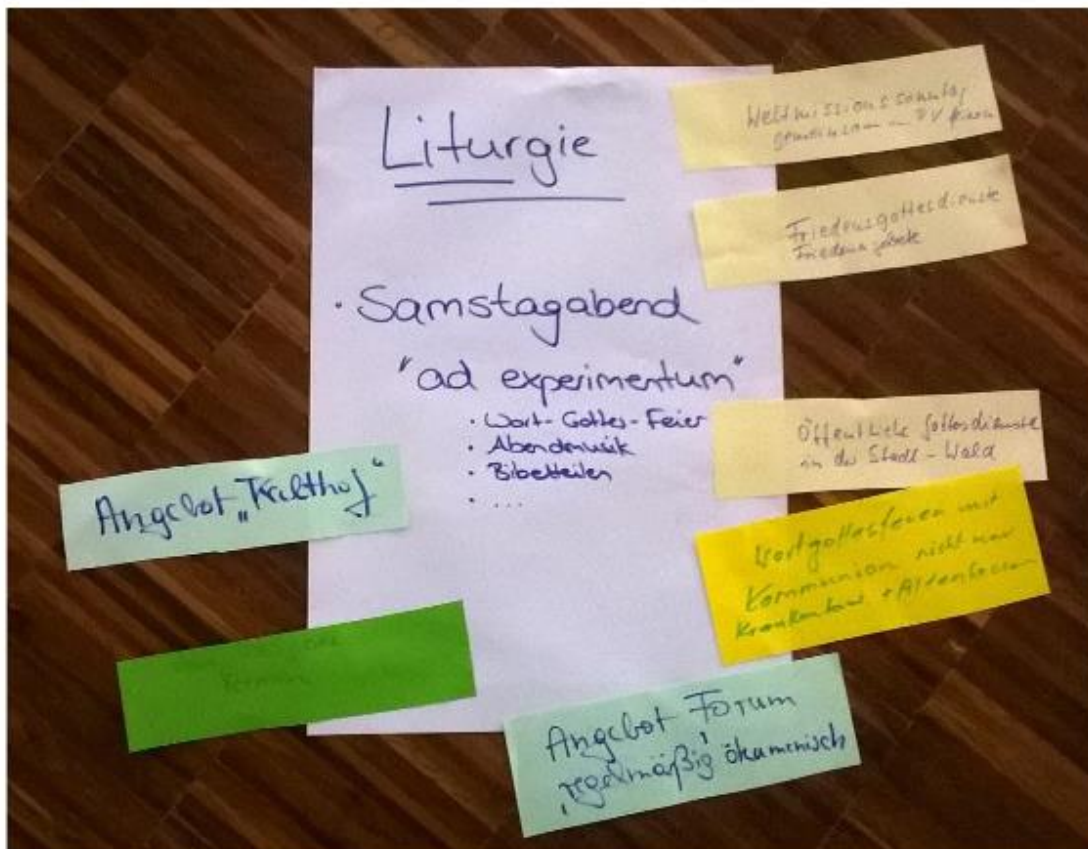 Liturgie
· Samstagabend
"ad experimentum"
· Wort-Gottes-Feier
· Abendmusik
· Bibelteilen
· ...
Weltmissionssonntag
gemeinsam in
Friedensgottesdienste
Öffentliche Gottesdienste
in der Stadt - Wald
Wortgottesfeiern mit
Kommunion nicht nur
Krankenhaus +
Angebot
Angebot Forum
regelmäßig ökumenisch